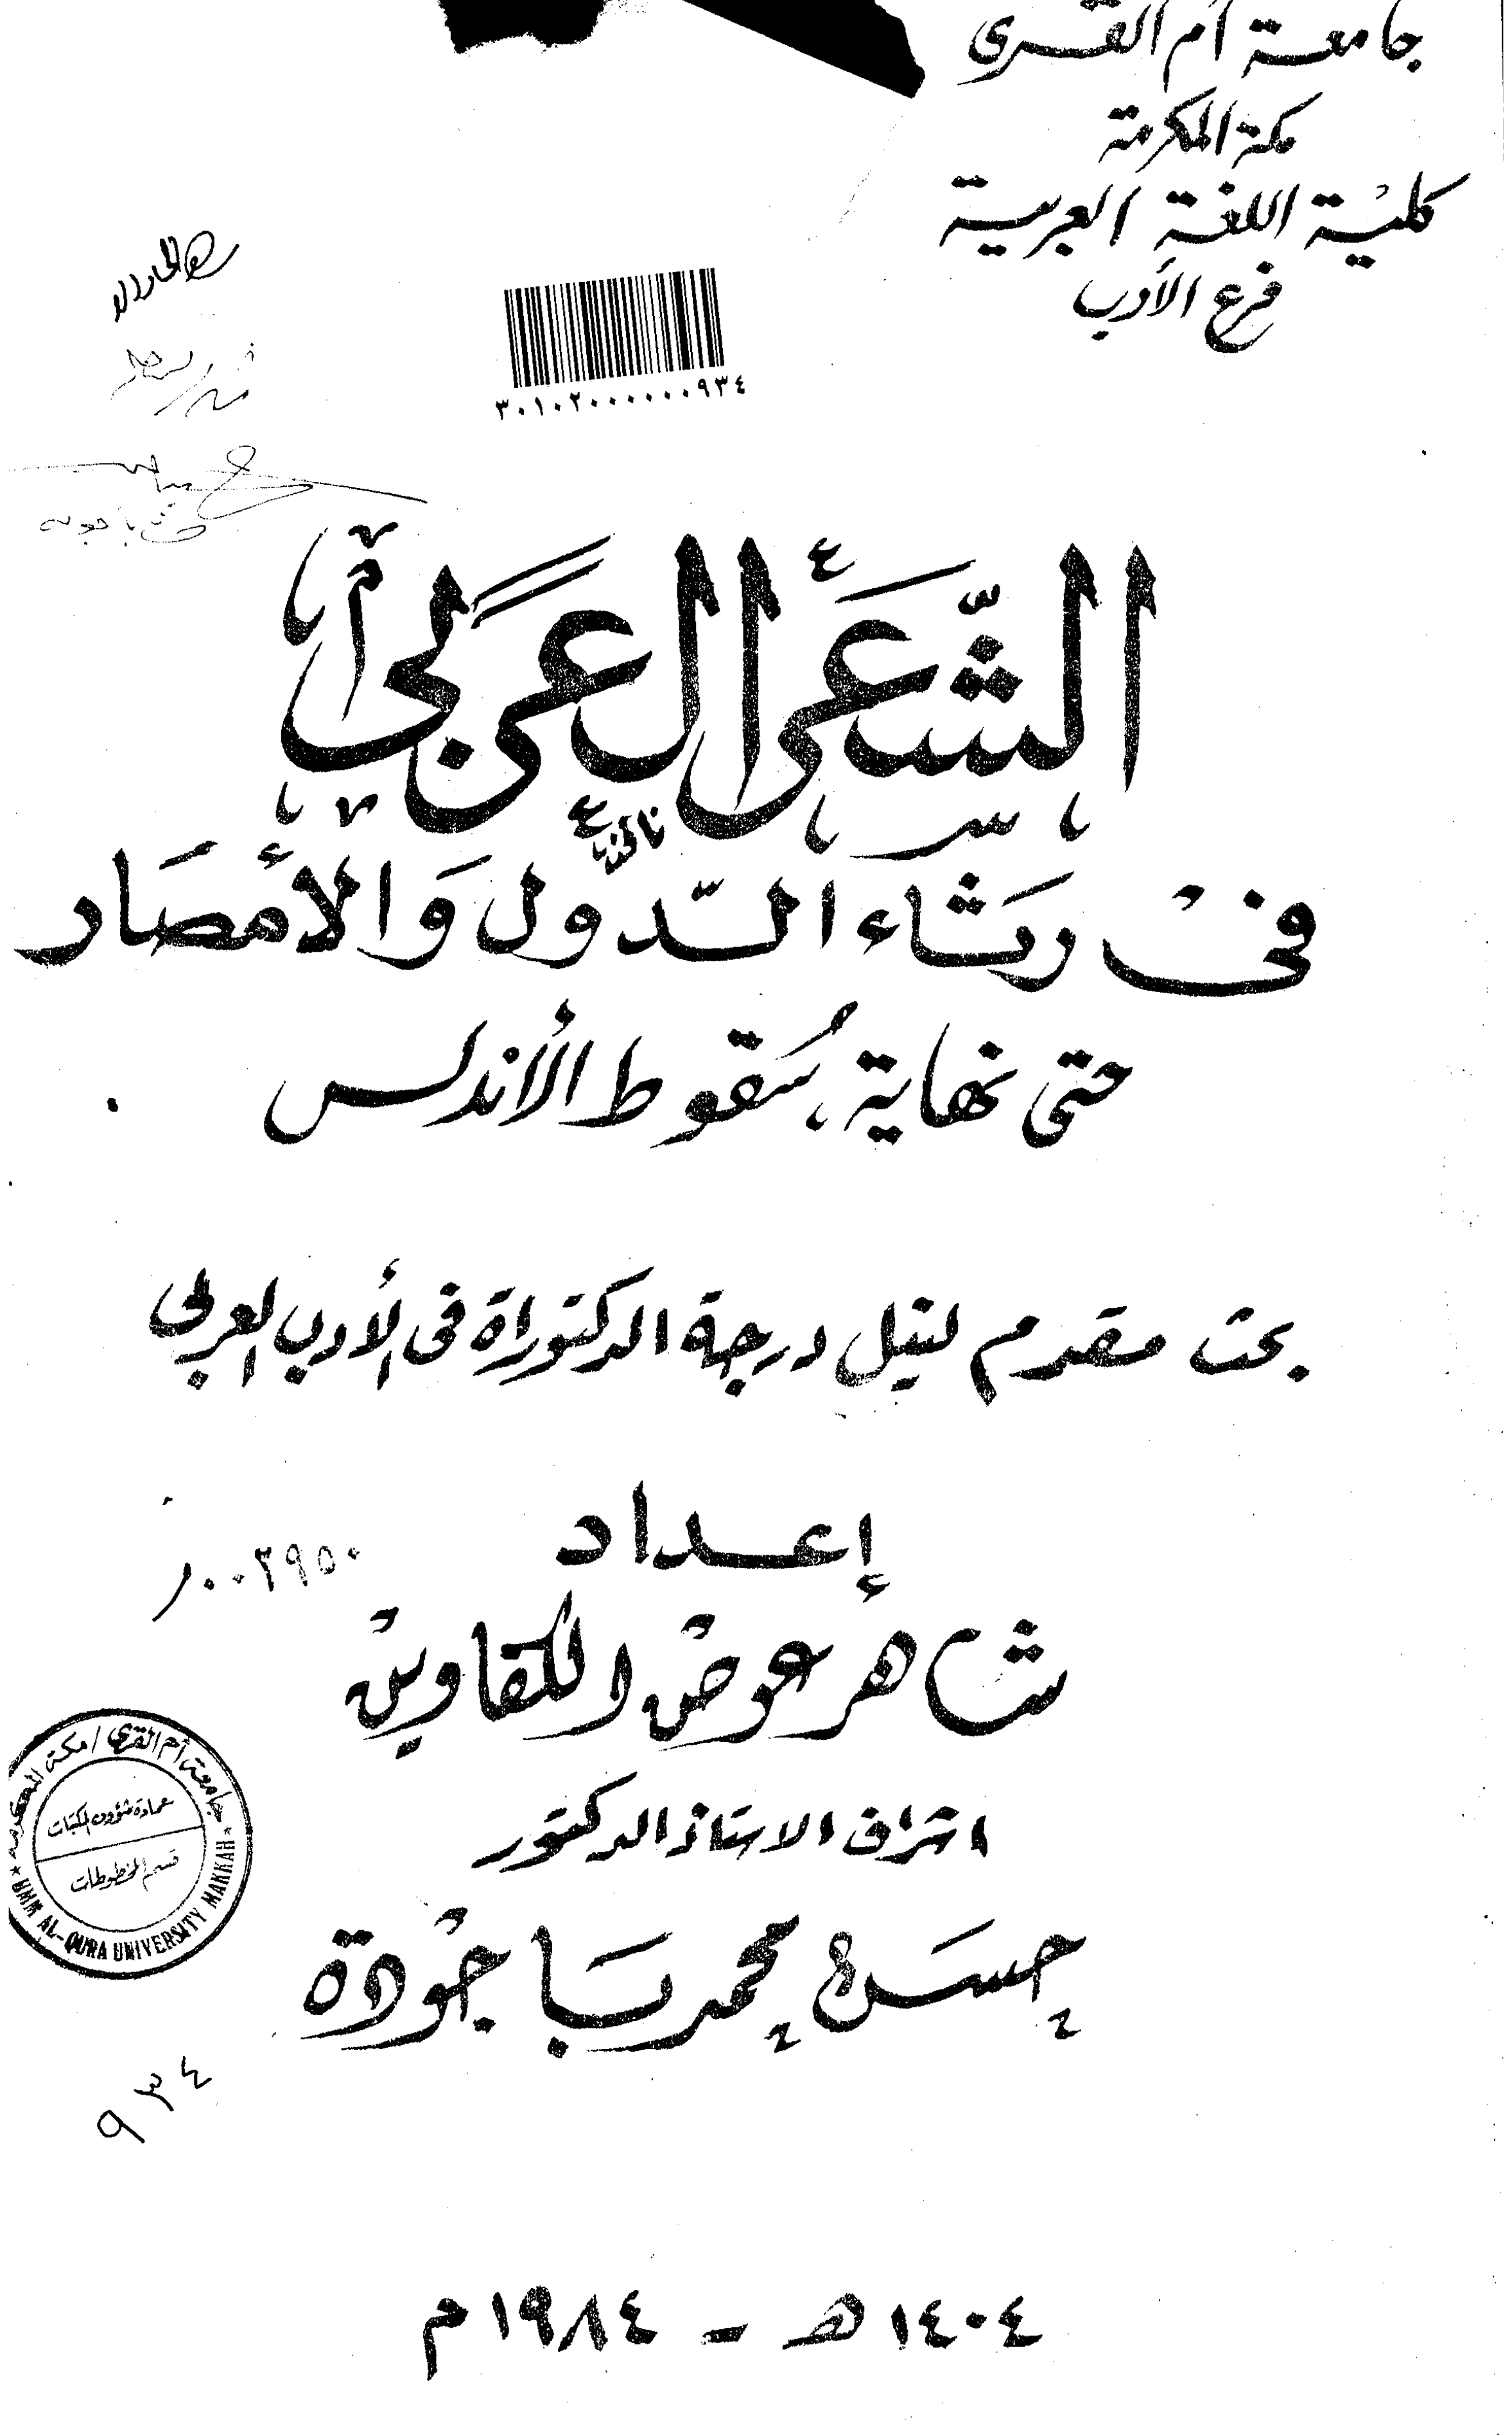 جامعة أم القرى
مكة المكرمة
كلية اللغة العربية
فرع الأدب
٣٠١٠٢٠٠٠٠٠٠٩٣٤
الشعر العربي
في رثاء الدول والأمصار
حتى نهاية سقوط الأندلس
بحث مقدم لنيل درجة الدكتوراة في الأدب العربي
إعداد
٠٠٢٩٥٠
شاهر عوض الكفاوين
اشراف الاستاذ الدكتور
حسن محمد باجودة
جامعة أم القرى / مكة المكرمة
عمادة شؤون المكتبات
قسم المخطوطات
UMM AL-QURA UNIVERSITY MAKKAH
٩٣٤
١٤٠٤ هـ - ١٩٨٤ م